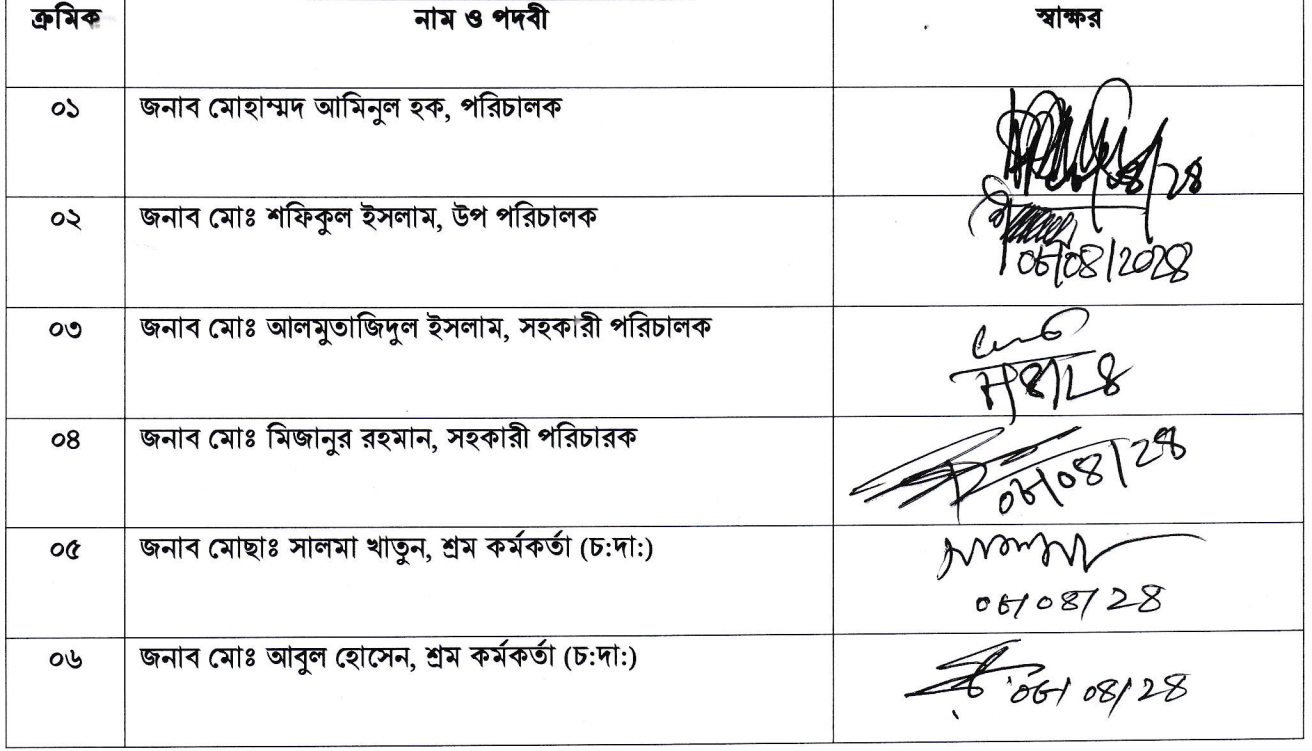 ক্রমিক নাম ও পদবী স্বাক্ষর
০১ জনাব মোহাম্মদ আমিনুল হক, পরিচালক
০৮/২৪
০২ জনাব মোঃ শফিকুল ইসলাম, উপ পরিচালক
০৮/০৪/২০২৪
০৩ জনাব মোঃ আলমুতাজিদুল ইসলাম, সহকারী পরিচালক
৮/৪/২৪
০৪ জনাব মোঃ মিজানুর রহমান, সহকারী পরিচারক
০৮/০৪/২৪
০৫ জনাব মোছাঃ সালমা খাতুন, শ্রম কর্মকর্তা (চ:দা:)
সালমা
০৮/০৪/২৪
০৬ জনাব মোঃ আবুল হোসেন, শ্রম কর্মকর্তা (চ:দা:)
০৮/০৪/২৪